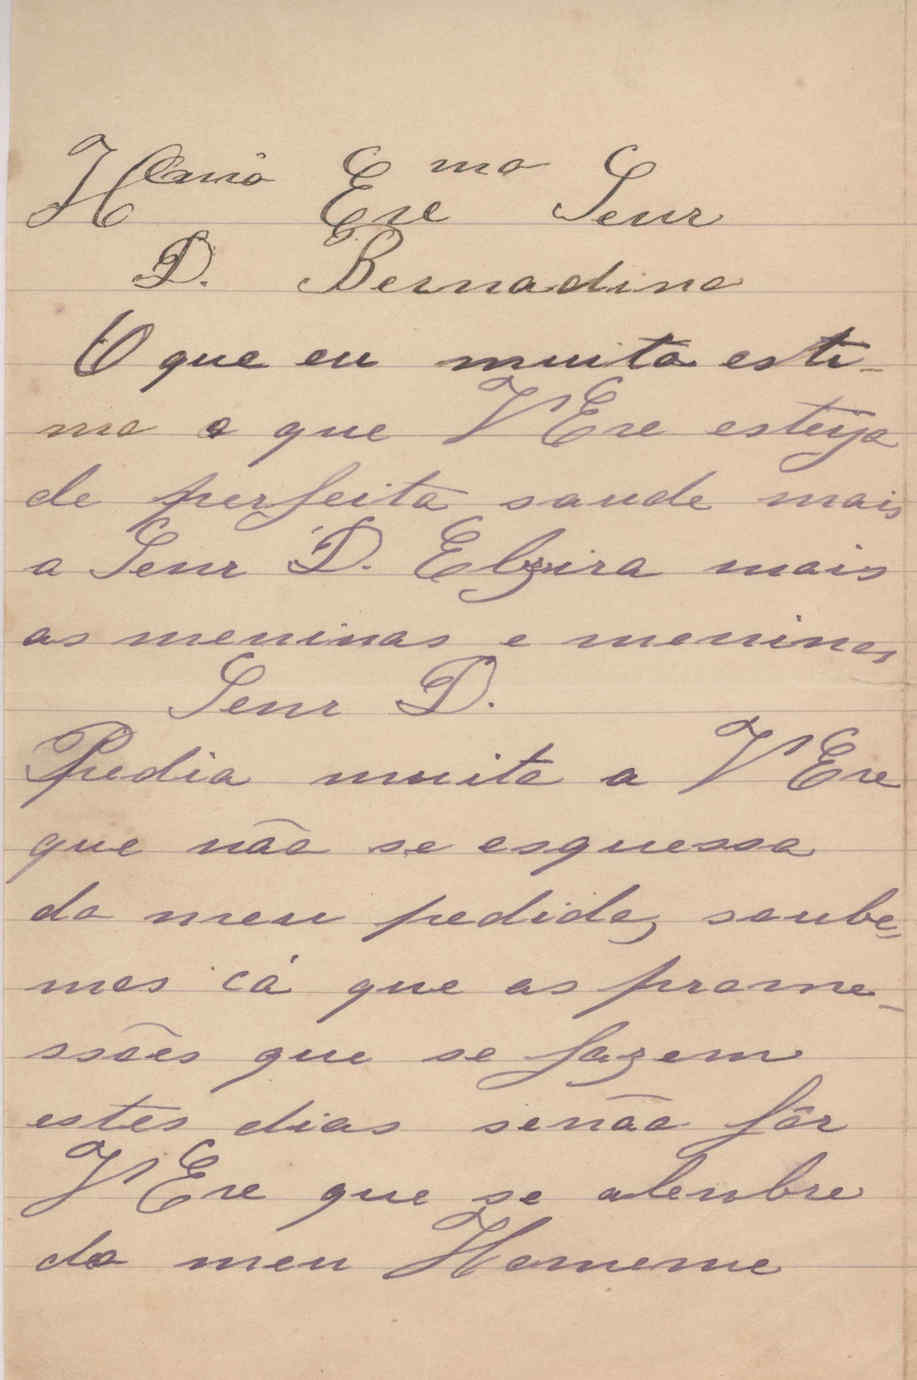 Ill.mo Exe mo Senr
D. Bernadino
O que eu muito esti-
mo e que V Exe esteija
de perfeita saude mais
a Senr D. Elzira mais
as meninas e meninos
Senr D.
Pedia muito a V Exe
que não se esquessa
do meu pedido, soube,
mos cá que as prome-
ssões que se fazem
estes dias senão fôr
V Exe que se alenbre
do meu Homeme